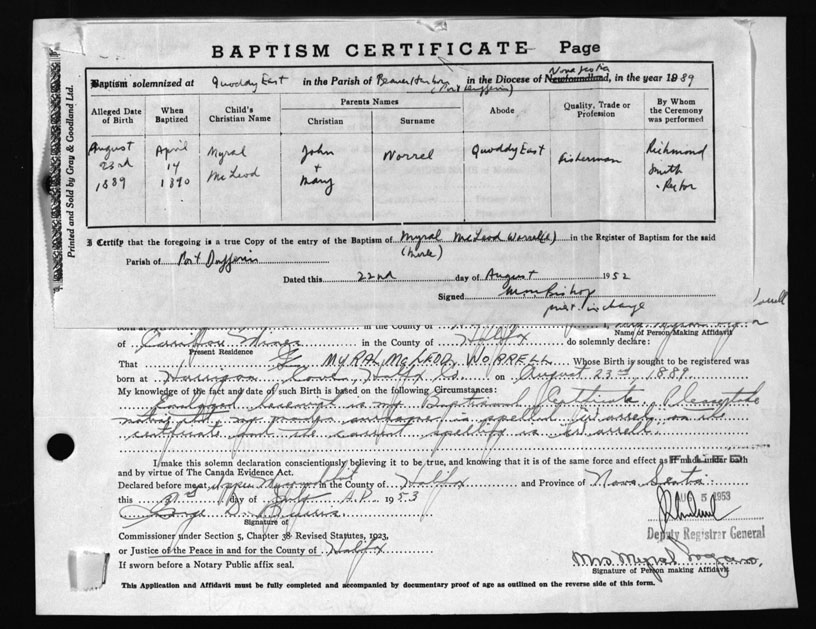 BAPTISM CERTIFICATE Page
Printed and Sold by Gray & Goodland Ltd.
Nova Scotia
Baptism solemnized at Quoddy East in the Parish of Beaver Harbor in the Diocese of Newfoundland, in the year 1889
(Port Dufferin)
Alleged Date of Birth When Baptized Child's Christian Name Parents Names Abode Quality, Trade or Profession By Whom the Ceremony was performed
Christian Surname
August April Myral John Worrel Quoddy East Fisherman Richmond
23rd 14 McLeod + Smith
1889 1890 Mary Rector
I Certify that the foregoing is a true Copy of the entry of the Baptism of Myral McLeod Worrell in the Register of Baptism for the said
Parish of Port Dufferin
Dated this 22nd day of August 1952
Signed
priest in charge
in the County of
Name of Person Making Affidavit
of Caribou Mines in the County of Halifax do solemnly declare:
Present Residence
That MYRAL McLEOD WORRELL Whose Birth is sought to be registered was
born at Harrigan Cove, Halifax Co. on August 23rd 1889
My knowledge of the fact and date of such Birth is based on the following Circumstances:
is my Baptismal Certificate. Please
surname is spelled on the
certificate but the correct spelling is
I make this solemn declaration conscientiously believing it to be true, and knowing that it is of the same force and effect as if made under oath
and by virtue of The Canada Evidence Act.
Declared before me at in the County of Halifax and Province of Nova Scotia
this day of A.D. 1953
FILED
AUG 5 1953
George
Signature of
Deputy Registrar General
Commissioner under Section 5, Chapter 38 Revised Statutes, 1923,
or Justice of the Peace in and for the County of Halifax
If sworn before a Notary Public affix seal.
Mrs Myral
Signature of Person making Affidavit
This Application and Affidavit must be fully completed and accompanied by documentary proof of age as outlined on the reverse side of this form.